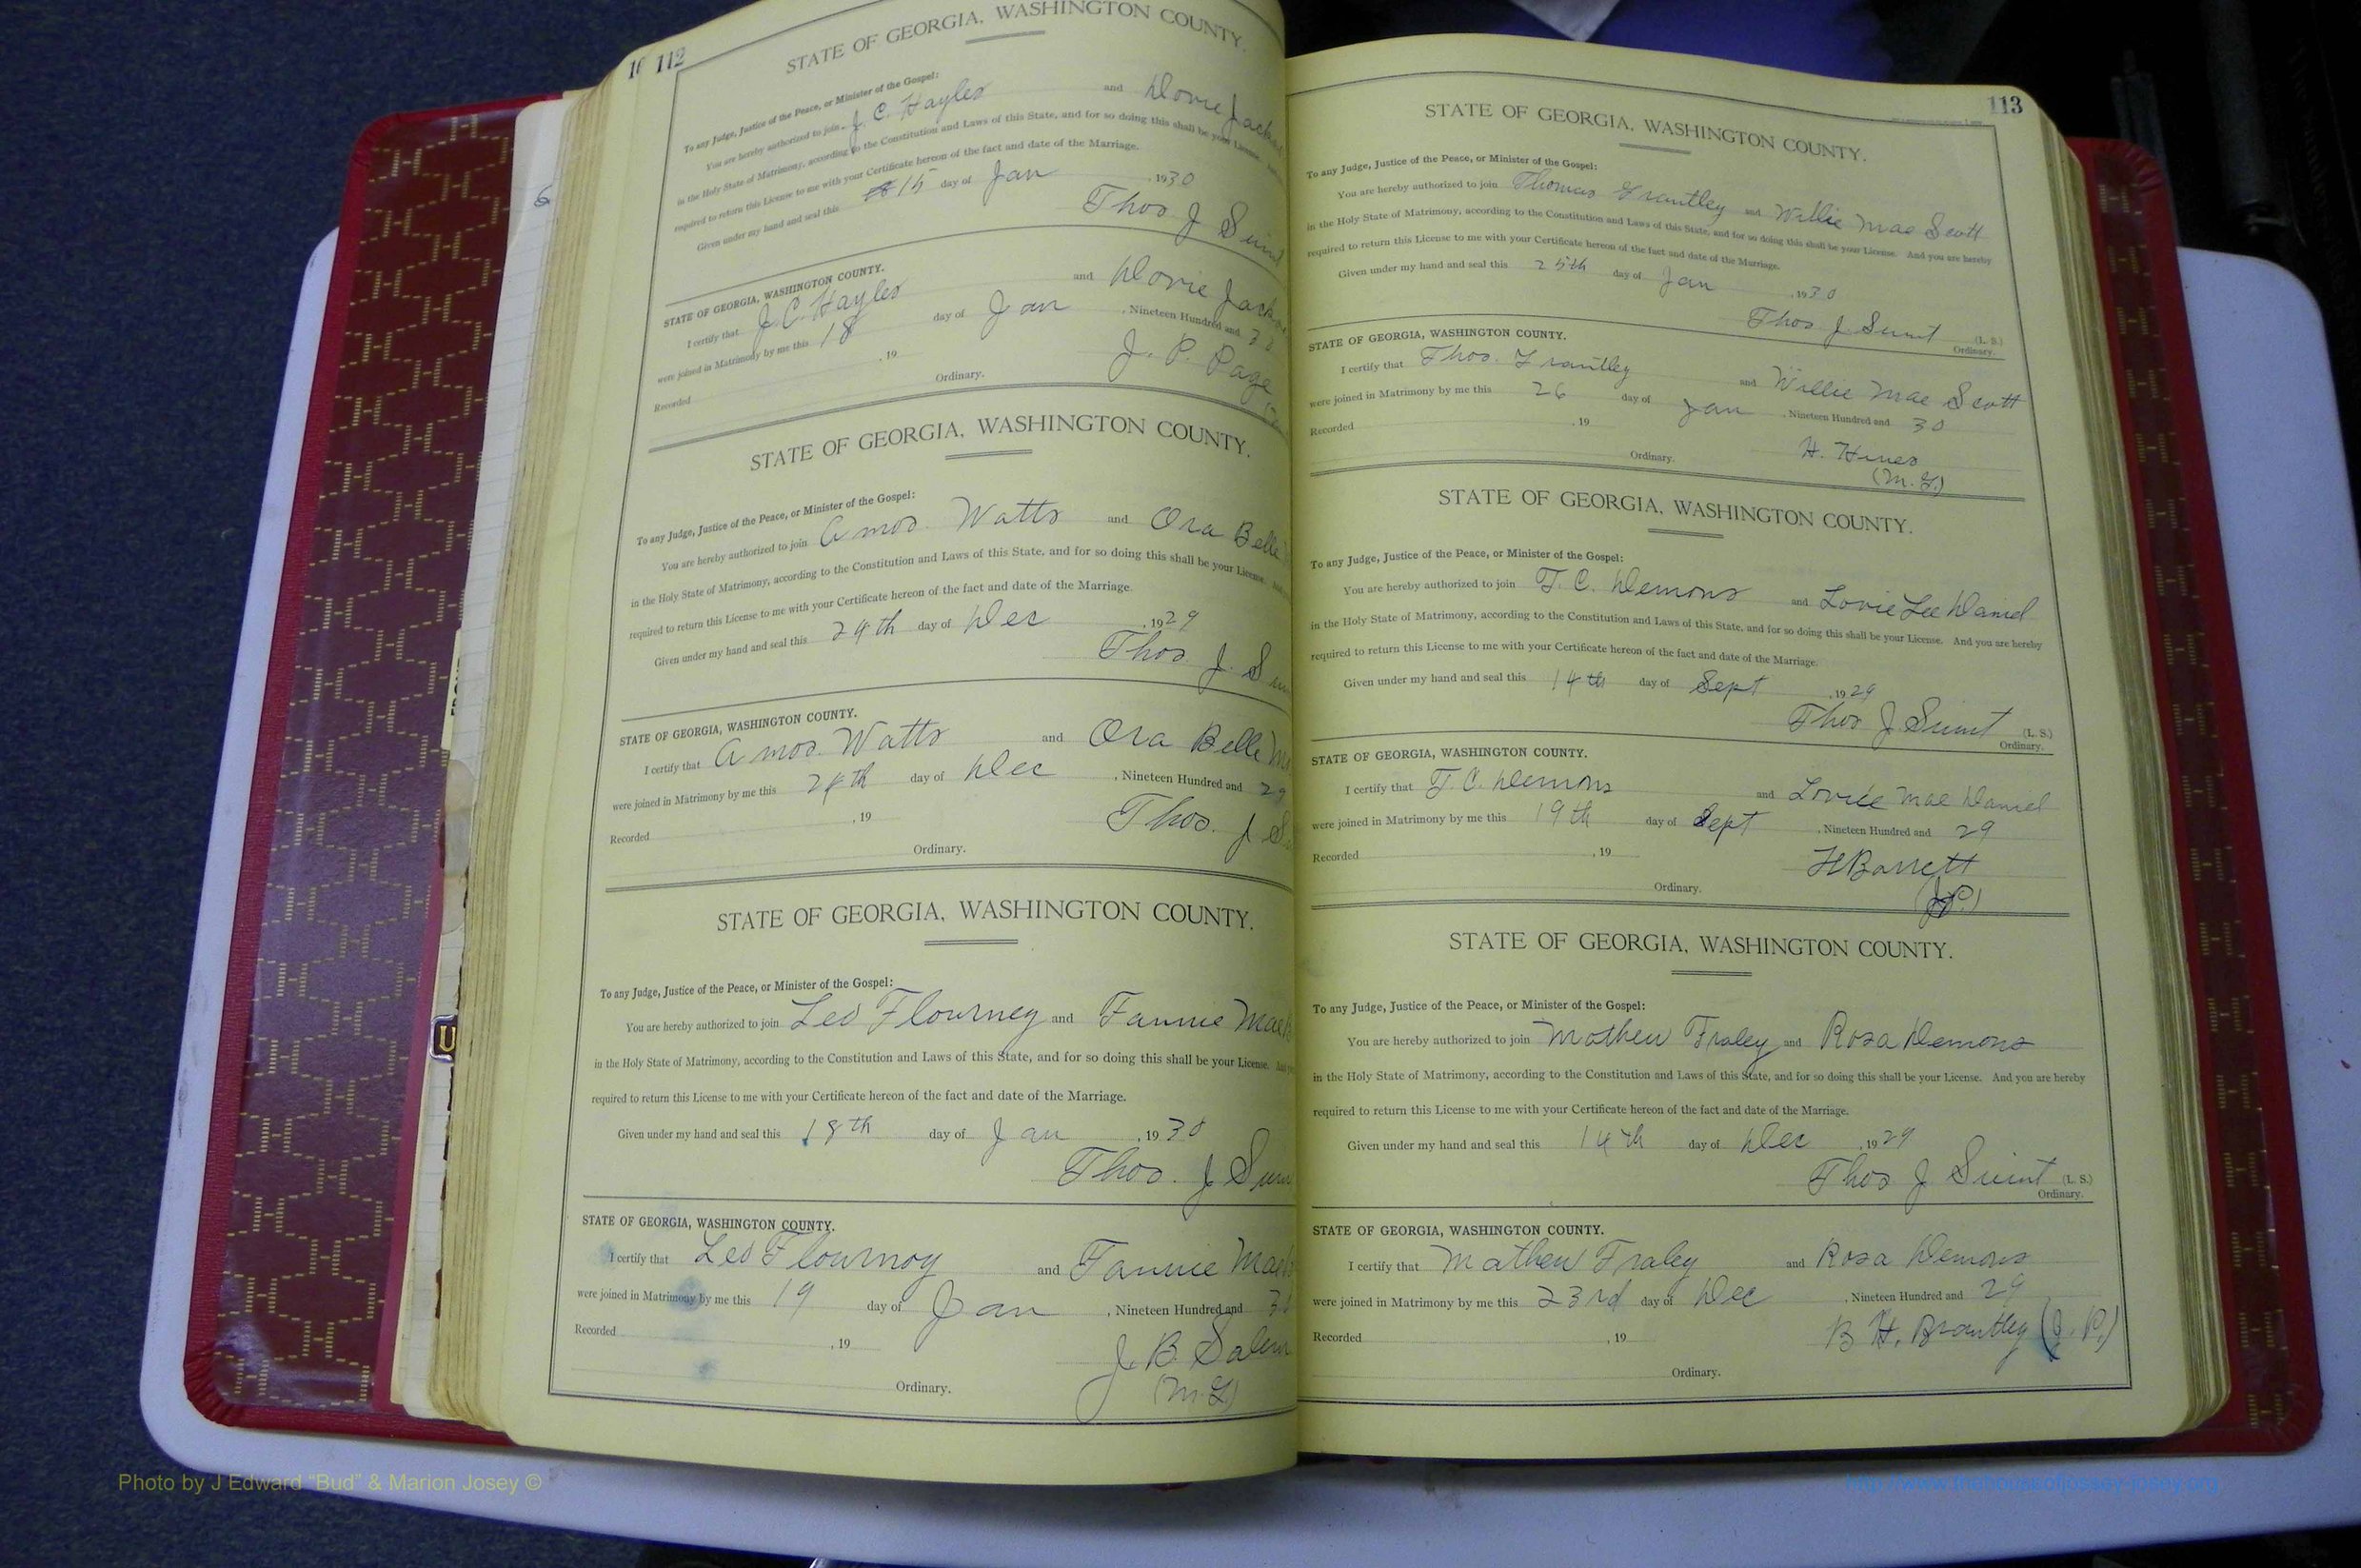 112
STATE OF GEORGIA, WASHINGTON COUNTY.
To any Judge, Justice of the Peace, or Minister of the Gospel:
You are hereby authorized to join J. C. Hayles and Dovie Jack
in the Holy State of Matrimony, according to the Constitution and Laws of this State, and for so doing this shall be your License.
required to return this License to me with your Certificate hereon of the fact and date of the Marriage.
Given under my hand and seal this 15 day of Jan , 1930
Thos J
STATE OF GEORGIA, WASHINGTON COUNTY.
I certify that J. C. Hayles and Dovie Jack
were joined in Matrimony by me this 18 day of Jan , Nineteen Hundred and 30
Recorded , 19
J. P. Page
Ordinary.
STATE OF GEORGIA, WASHINGTON COUNTY.
To any Judge, Justice of the Peace, or Minister of the Gospel:
You are hereby authorized to join Amos Watts and Ora Belle
in the Holy State of Matrimony, according to the Constitution and Laws of this State, and for so doing this shall be your License.
required to return this License to me with your Certificate hereon of the fact and date of the Marriage.
Given under my hand and seal this 29th day of Dec , 1929
Thos. J. S
STATE OF GEORGIA, WASHINGTON COUNTY.
I certify that Amos Watts and Ora Belle
were joined in Matrimony by me this 29th day of Dec , Nineteen Hundred and 29
Recorded , 19
Thos. J. S
Ordinary.
STATE OF GEORGIA, WASHINGTON COUNTY.
To any Judge, Justice of the Peace, or Minister of the Gospel:
You are hereby authorized to join Leo Flourney and Fannie Mae
in the Holy State of Matrimony, according to the Constitution and Laws of this State, and for so doing this shall be your License.
required to return this License to me with your Certificate hereon of the fact and date of the Marriage.
Given under my hand and seal this 18th day of Jan , 1930
Thos. J
STATE OF GEORGIA, WASHINGTON COUNTY.
I certify that Leo Flournoy and Fannie Mae
were joined in Matrimony by me this 19 day of Jan , Nineteen Hundred and 30
Recorded , 19
J. B. Salem
(M.G.)
Ordinary.
113
STATE OF GEORGIA, WASHINGTON COUNTY.
To any Judge, Justice of the Peace, or Minister of the Gospel:
You are hereby authorized to join Thomas Frantley and Willie Mae Scott
in the Holy State of Matrimony, according to the Constitution and Laws of this State, and for so doing this shall be your License. And you are hereby
required to return this License to me with your Certificate hereon of the fact and date of the Marriage.
Given under my hand and seal this 25th day of Jan , 1930
Thos J. Swint (L. S.)
Ordinary.
STATE OF GEORGIA, WASHINGTON COUNTY.
I certify that Thos. Frantley and Willie Mae Scott
were joined in Matrimony by me this 26 day of Jan , Nineteen Hundred and 30
Recorded , 19
H. Hines
Ordinary.
(M.G.)
STATE OF GEORGIA, WASHINGTON COUNTY.
To any Judge, Justice of the Peace, or Minister of the Gospel:
You are hereby authorized to join T. C. Demons and Lovie Lee Daniel
in the Holy State of Matrimony, according to the Constitution and Laws of this State, and for so doing this shall be your License. And you are hereby
required to return this License to me with your Certificate hereon of the fact and date of the Marriage.
Given under my hand and seal this 14th day of Sept , 1929
Thos J. Swint (L. S.)
Ordinary.
STATE OF GEORGIA, WASHINGTON COUNTY.
I certify that T. C. Demons and Lovie Mae Daniel
were joined in Matrimony by me this 19th day of Sept , Nineteen Hundred and 29
Recorded , 19
H Barrett
Ordinary.
(J.P.)
STATE OF GEORGIA, WASHINGTON COUNTY.
To any Judge, Justice of the Peace, or Minister of the Gospel:
You are hereby authorized to join Mathew Fraley and Rosa Demons
in the Holy State of Matrimony, according to the Constitution and Laws of this State, and for so doing this shall be your License. And you are hereby
required to return this License to me with your Certificate hereon of the fact and date of the Marriage.
Given under my hand and seal this 14th day of Dec , 1929
Thos J Swint (L. S.)
Ordinary.
STATE OF GEORGIA, WASHINGTON COUNTY.
I certify that Mathew Fraley and Rosa Demons
were joined in Matrimony by me this 23rd day of Dec , Nineteen Hundred and 29
Recorded , 19
B. H. Brantley (J. P.)
Ordinary.
Photo by J Edward “Bud” & Marion Josey ©
http://www.thehouseofjossey-josey.org